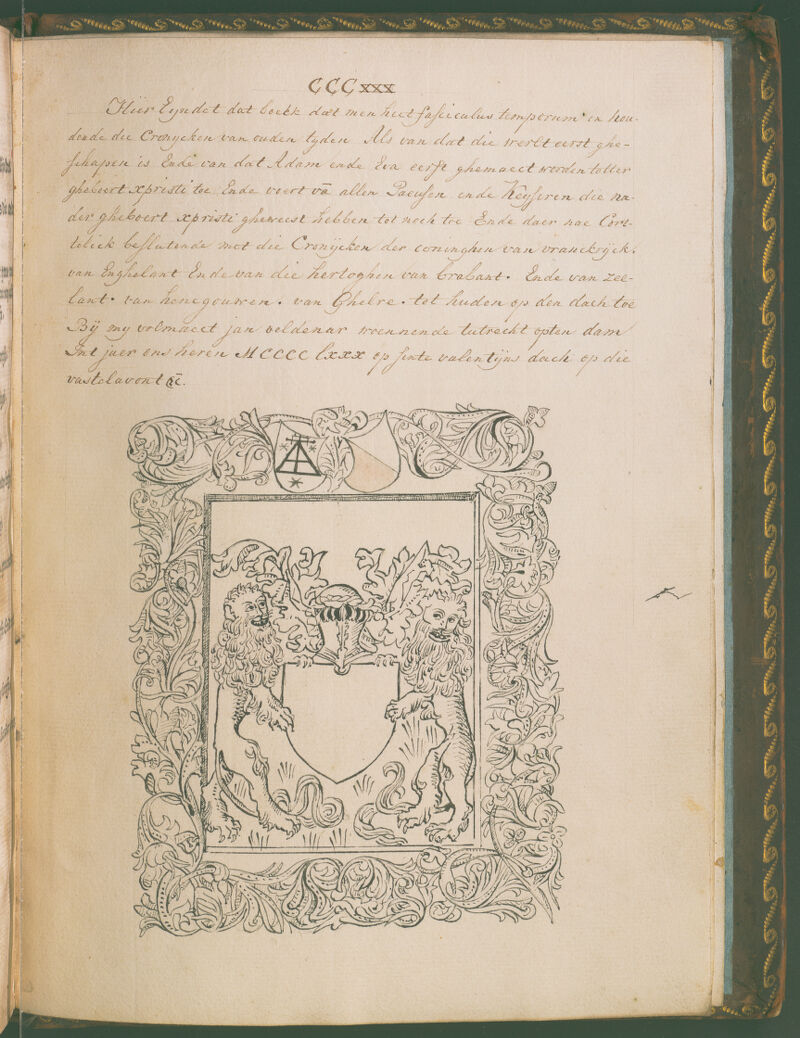 CCCxxx
Hiir Eyndet dat boeck dat men hiet fasciculus temporum en hou-
dende die Cronycken van ouden tyden Als van dat die werlt eerst ghe-
schapen is Ende van dat Adam ende Eva eerst ghemaect worden totter
gheboert xpristi toe Ende voert vā allen Paeusen ende Keyseren die na-
der gheboert xpristi gheweest hebben tot noch toe Ende daer nae Cort-
telick beslutende mit die Cronycken der coninghen van vranckrijck.
van Enghelant Ende van die hertoghen van brabant. Ende van zee-
lant. van henegouwen. van Ghelre. tot huden op den dach toe
Bÿ my volmaect jan veldenar woennende tutrecht opten dam
Int jaer ons heren MCCCC lxxx op sinte valentÿns dach op die
vastelavont &c.